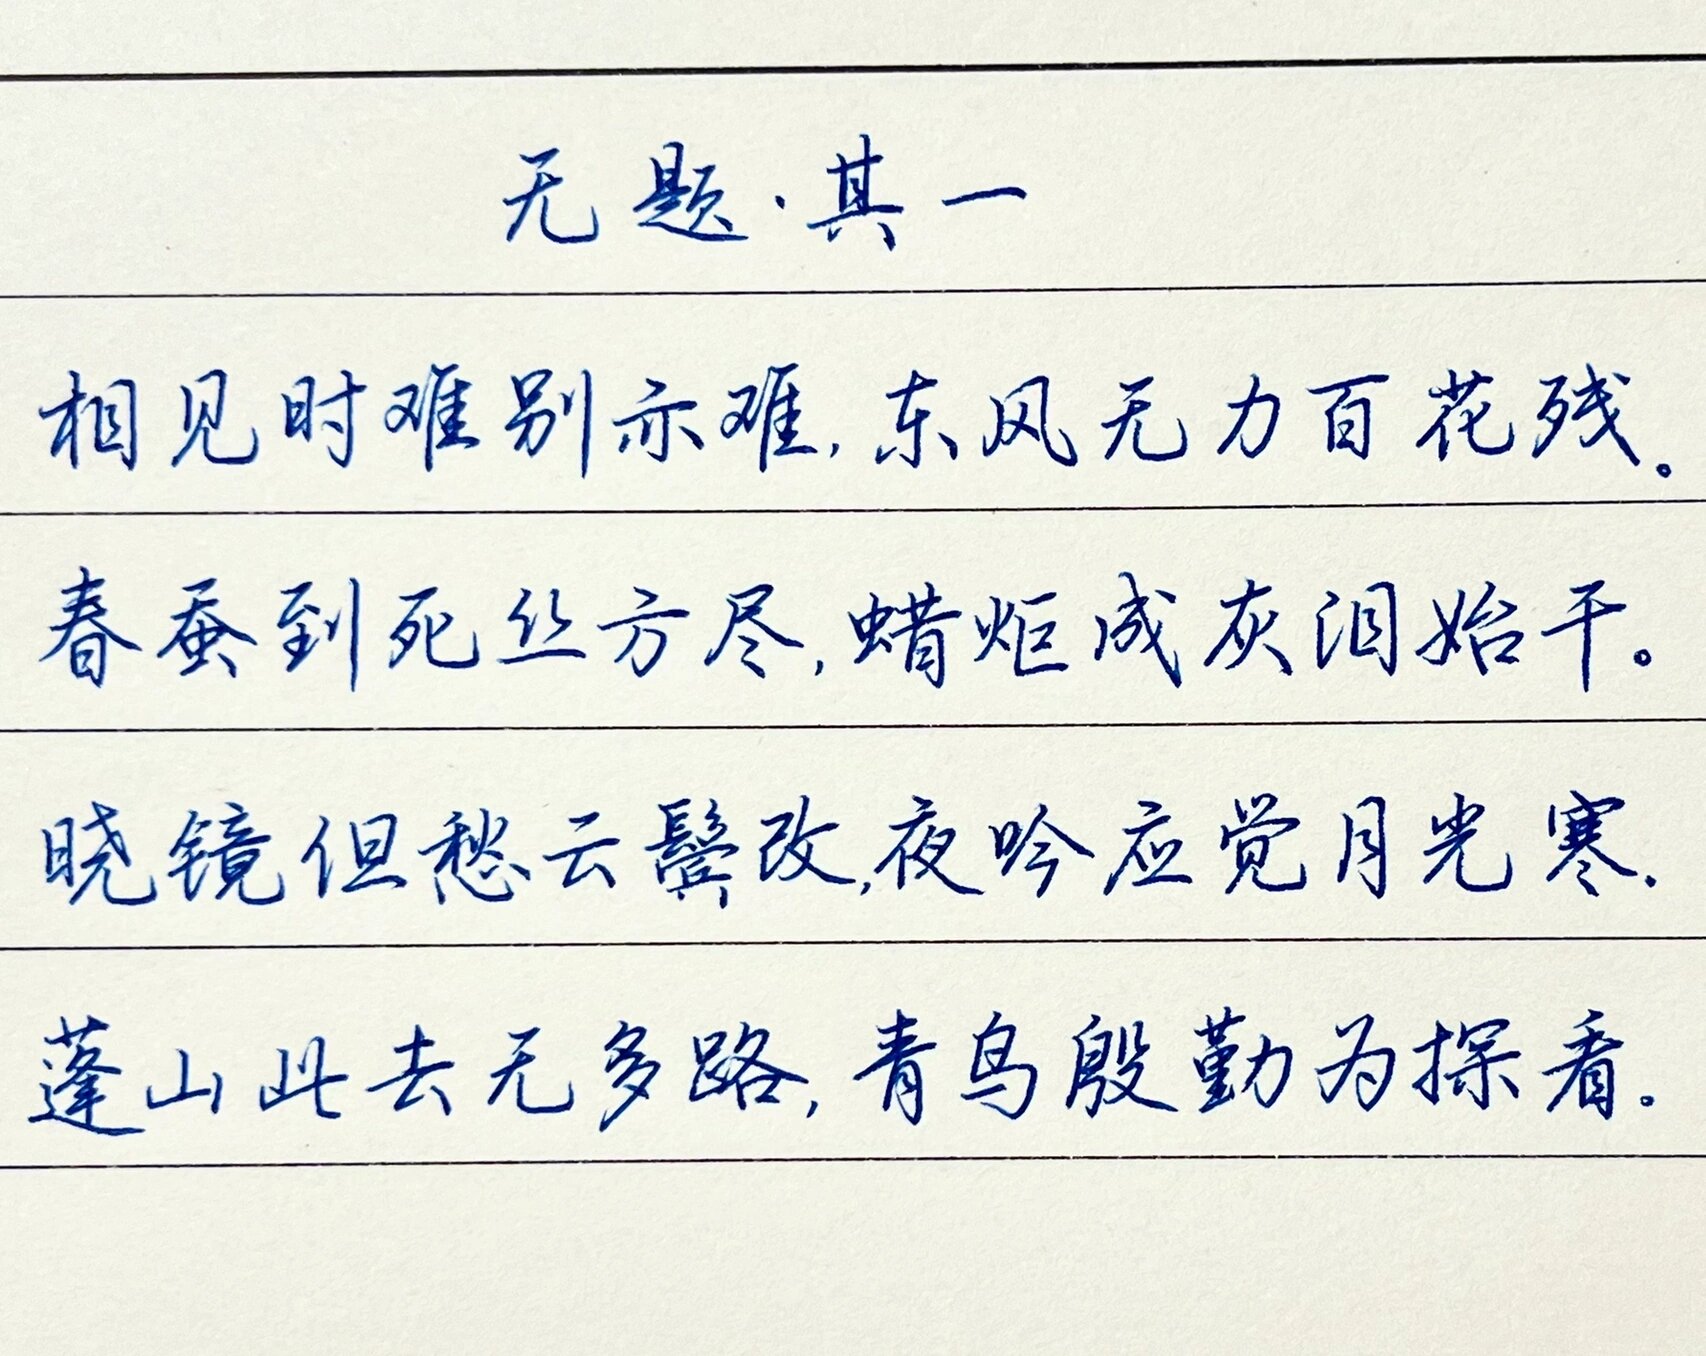 无题·其一
相见时难别亦难,东风无力百花残。
春蚕到死丝方尽,蜡炬成灰泪始干。
晓镜但愁云鬓改,夜吟应觉月光寒.
蓬山此去无多路,青鸟殷勤为探看。